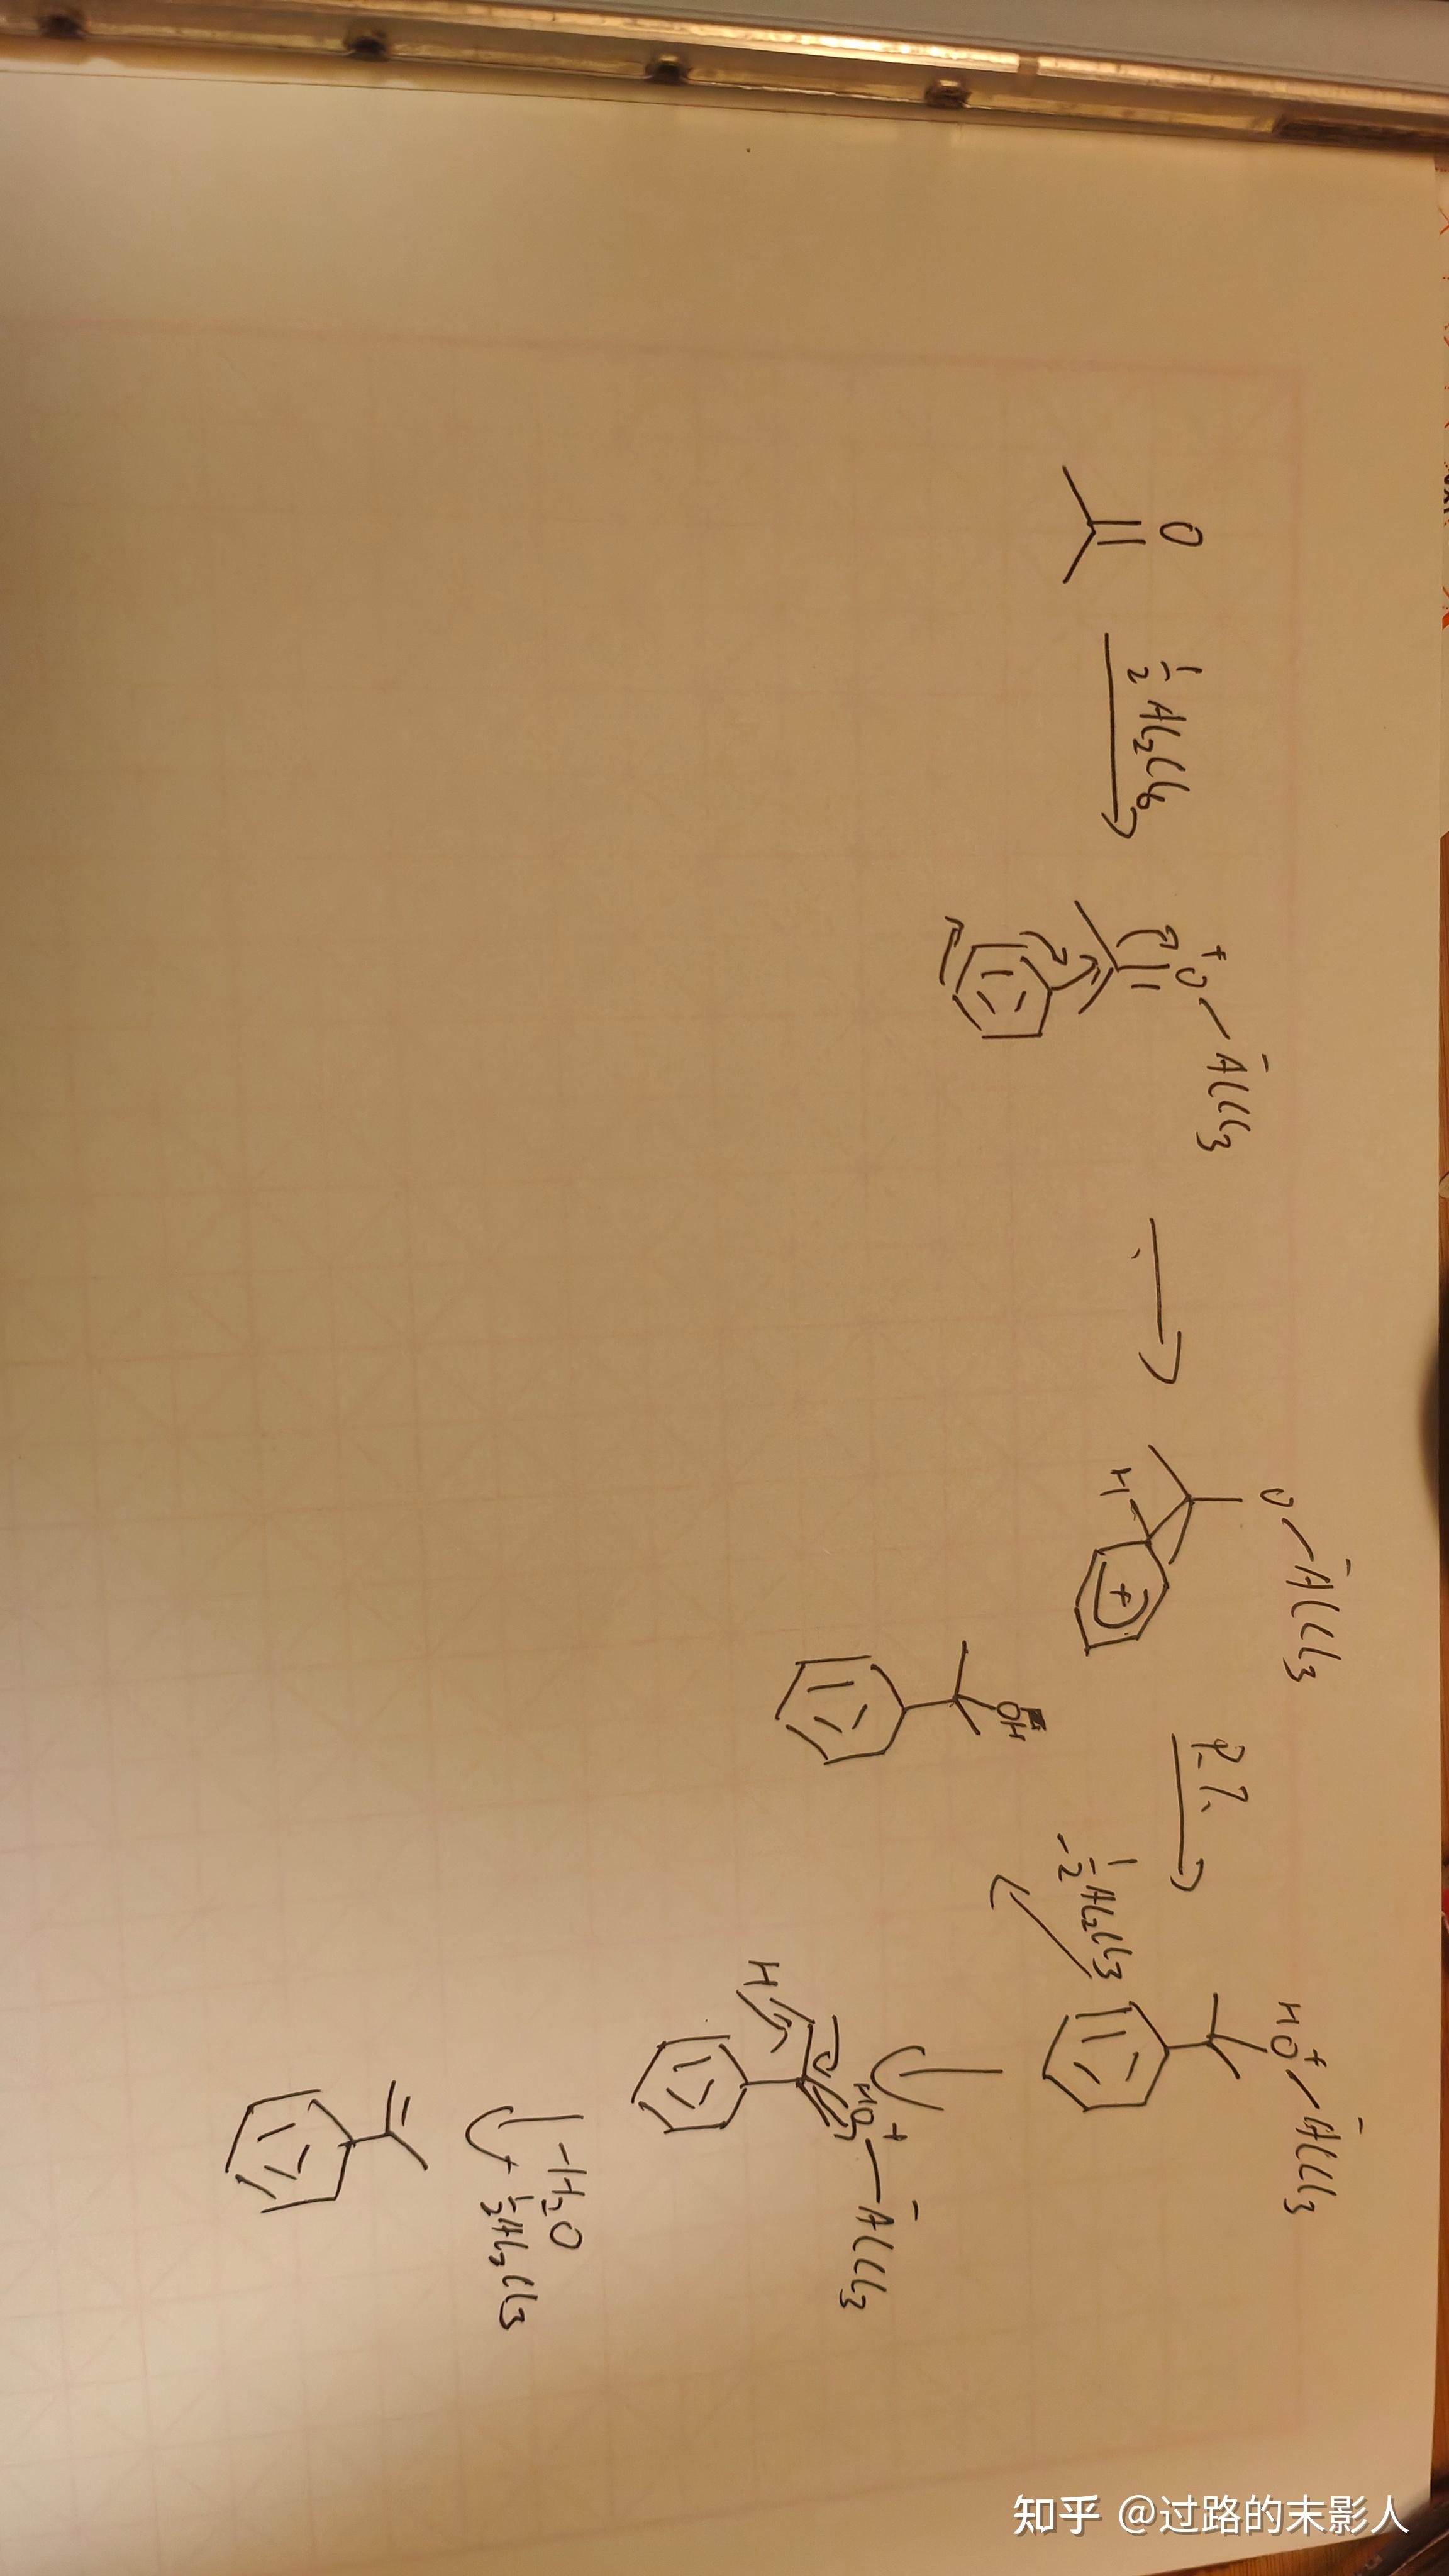 O
1/2 Al2Cl6
+
O
-
AlCl3
O
-
AlCl3
H
+
P.T.
HO
+
-
AlCl3
-1/2 Al2Cl3
OH
H
HO
+
-
AlCl3
-H2O
-1/2 Al2Cl3
知乎 @过路的末影人